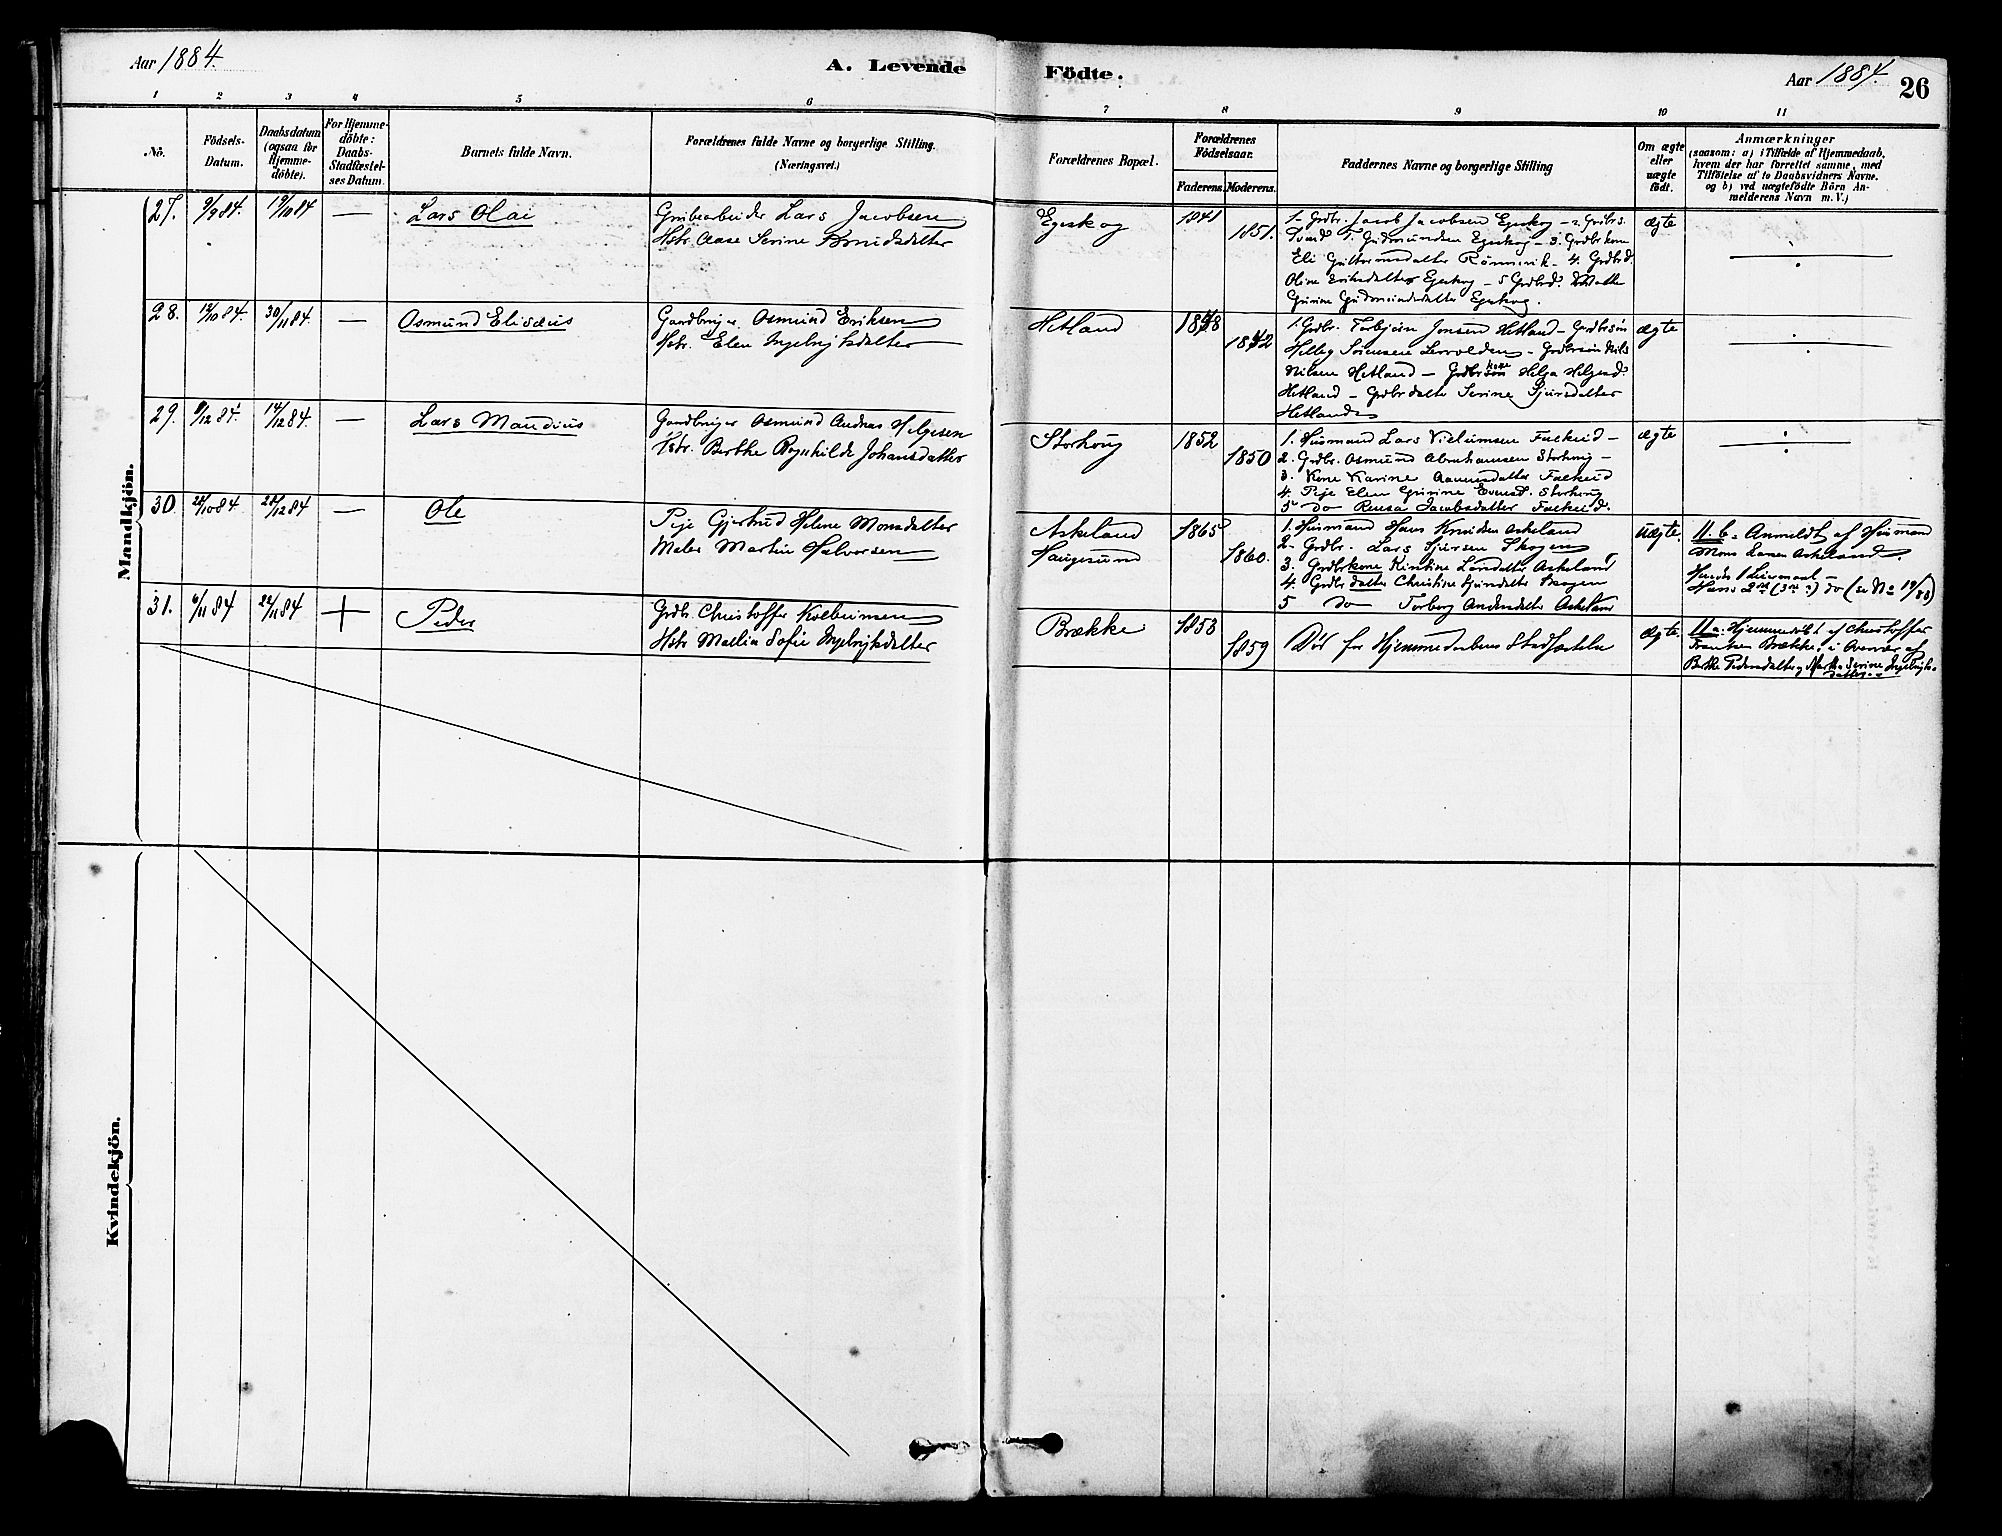 Aar 1884.
A. Levende Födte.
Aar 1884.
26
1 2 3 4 5 6 7 8 9 10 11
No.
Födsels-
Datum.
Daabsdatum
(ogsaa for
Hjemme-
döbte).
For Hjemme-
döbte:
Daabs-
Stadfæstel-
ses Datum.
Barnets fulde Navn.
Forældrenes fulde Navne og borgerlige Stilling.
(Næringsvei.)
Forældrenes Bopæl.
Forældrenes
Födselsaar.
Faderens. Moderens.
Faddernes Navne og borgerlige Stilling
Om ægte
eller
uægte
födt.
Anmærkninger
(saasom: a) i Tilfælde af Hjemmedaab,
hvem der har forrettet samme, med
Tilföielse af to Daabsvidners Navne,
og b) ved uægtefödte Börn An-
melderens Navn m. V.)
Mandkjön.
27. 9/9 84. 19/10 84 — Lars Olai
Grubearbeider Lars Jacobsen
Hstr. Aase Serine Knudsdatter
Egeskog 1841
1851.
1. Grdbr. Jacob Jacobsen Egeskog — 2. Grdbrs.
Gudmundsen Egeskog — 3. Grdbrkone
Eli Guttormsdatter Rönnevik — 4. Grdbrd.
Oline Eriksdatter Egeskog — 5 Grdbrd.
Gurine Gudmundsdatter Egeskog.
ægte
28. 12/10 84. 30/11 84. — Osmund Elisæus
Gaardbruger Osmund Eriksen
Hstr. Elen Ingebrigtsdatter
Hetland 1848
1842
1. Grdbr. Torbjörn Jonsen Hetland — Grdbrsön
Helleg Sörensen — Grdbrsön Nils
Nilsen Hetland — Grdbrkone Helga Helgesd.
Hetland — Grdbrdatter Serine Sjursdatter
Hetland
ægte
29. 9/12 84. 14/12 84. — Lars Mandius
Gaardbruger Osmund Andreas Helgesen
Hstr. Berthe Bognhilde Johansdatter
Storhoug 1852
1850
1. Husmand Lars Falkeid —
2. Grdbr. Osmund Abrahamsen Storhoug —
3. Kone Karine Aamundsdatter Falkeid
4. Pige Elen Gurine Evensd. Storhoug
5 Do Rensa Jacobsdatter Falkeid.
ægte
30. 28/10 84. 28/12 84 — Ole
Pige Gjertrud Helene Monsdatter
Maler Martin Halvorsen
Askeland
Haugesund
1865
1860.
1. Husmand Hans Knudsen Askeland
2. Grdbr. Lars Sjursen Skogen
3. Grdbrkone Kirstine Larsdatter Askeland
4. Grdbrdatter Christine Skogen
5 Do Torborg Andersdatter Askeland
Uægte.
11. b. Anmeldt af Husmand
Mons Larsen Askeland.
Hendes 1 Leiermaal —
Hans 2det (3die?) do (se No 19/83)
31. 6/11 84 22/11 84 + Peder
Grdb. Christoffer Kolbeinsen
Hstr Malia Sofie Ingebrigtsdatter
Brække 1858
1859
Död för Hjemmedaabens Stadfæstelse
Ægte.
11 a. Hjemmedöbt af Christoffer
Frantsen Brække i Overvær af
Berthe Pedersdatter og Martha Serine Ingebrigts-
datter
Kvindekjön.